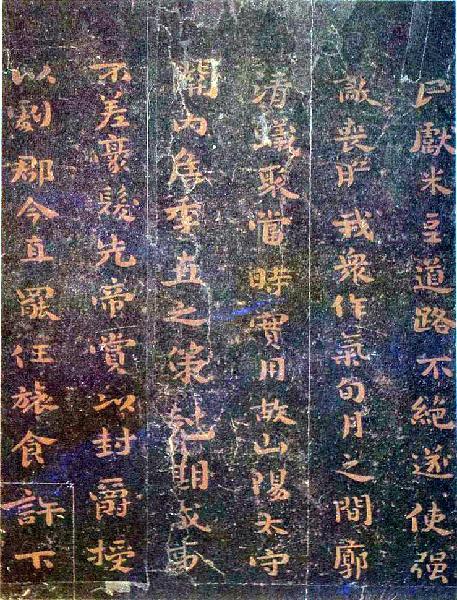 民獻米豆道路不絕遂使强
敵喪膽我衆作氣旬月之間廓
清蟻聚當時實用故山陽太守
關內侯季直之策尅期成事
不差豪髮先帝賞以封爵授
以劇郡今直罷任旅食許下